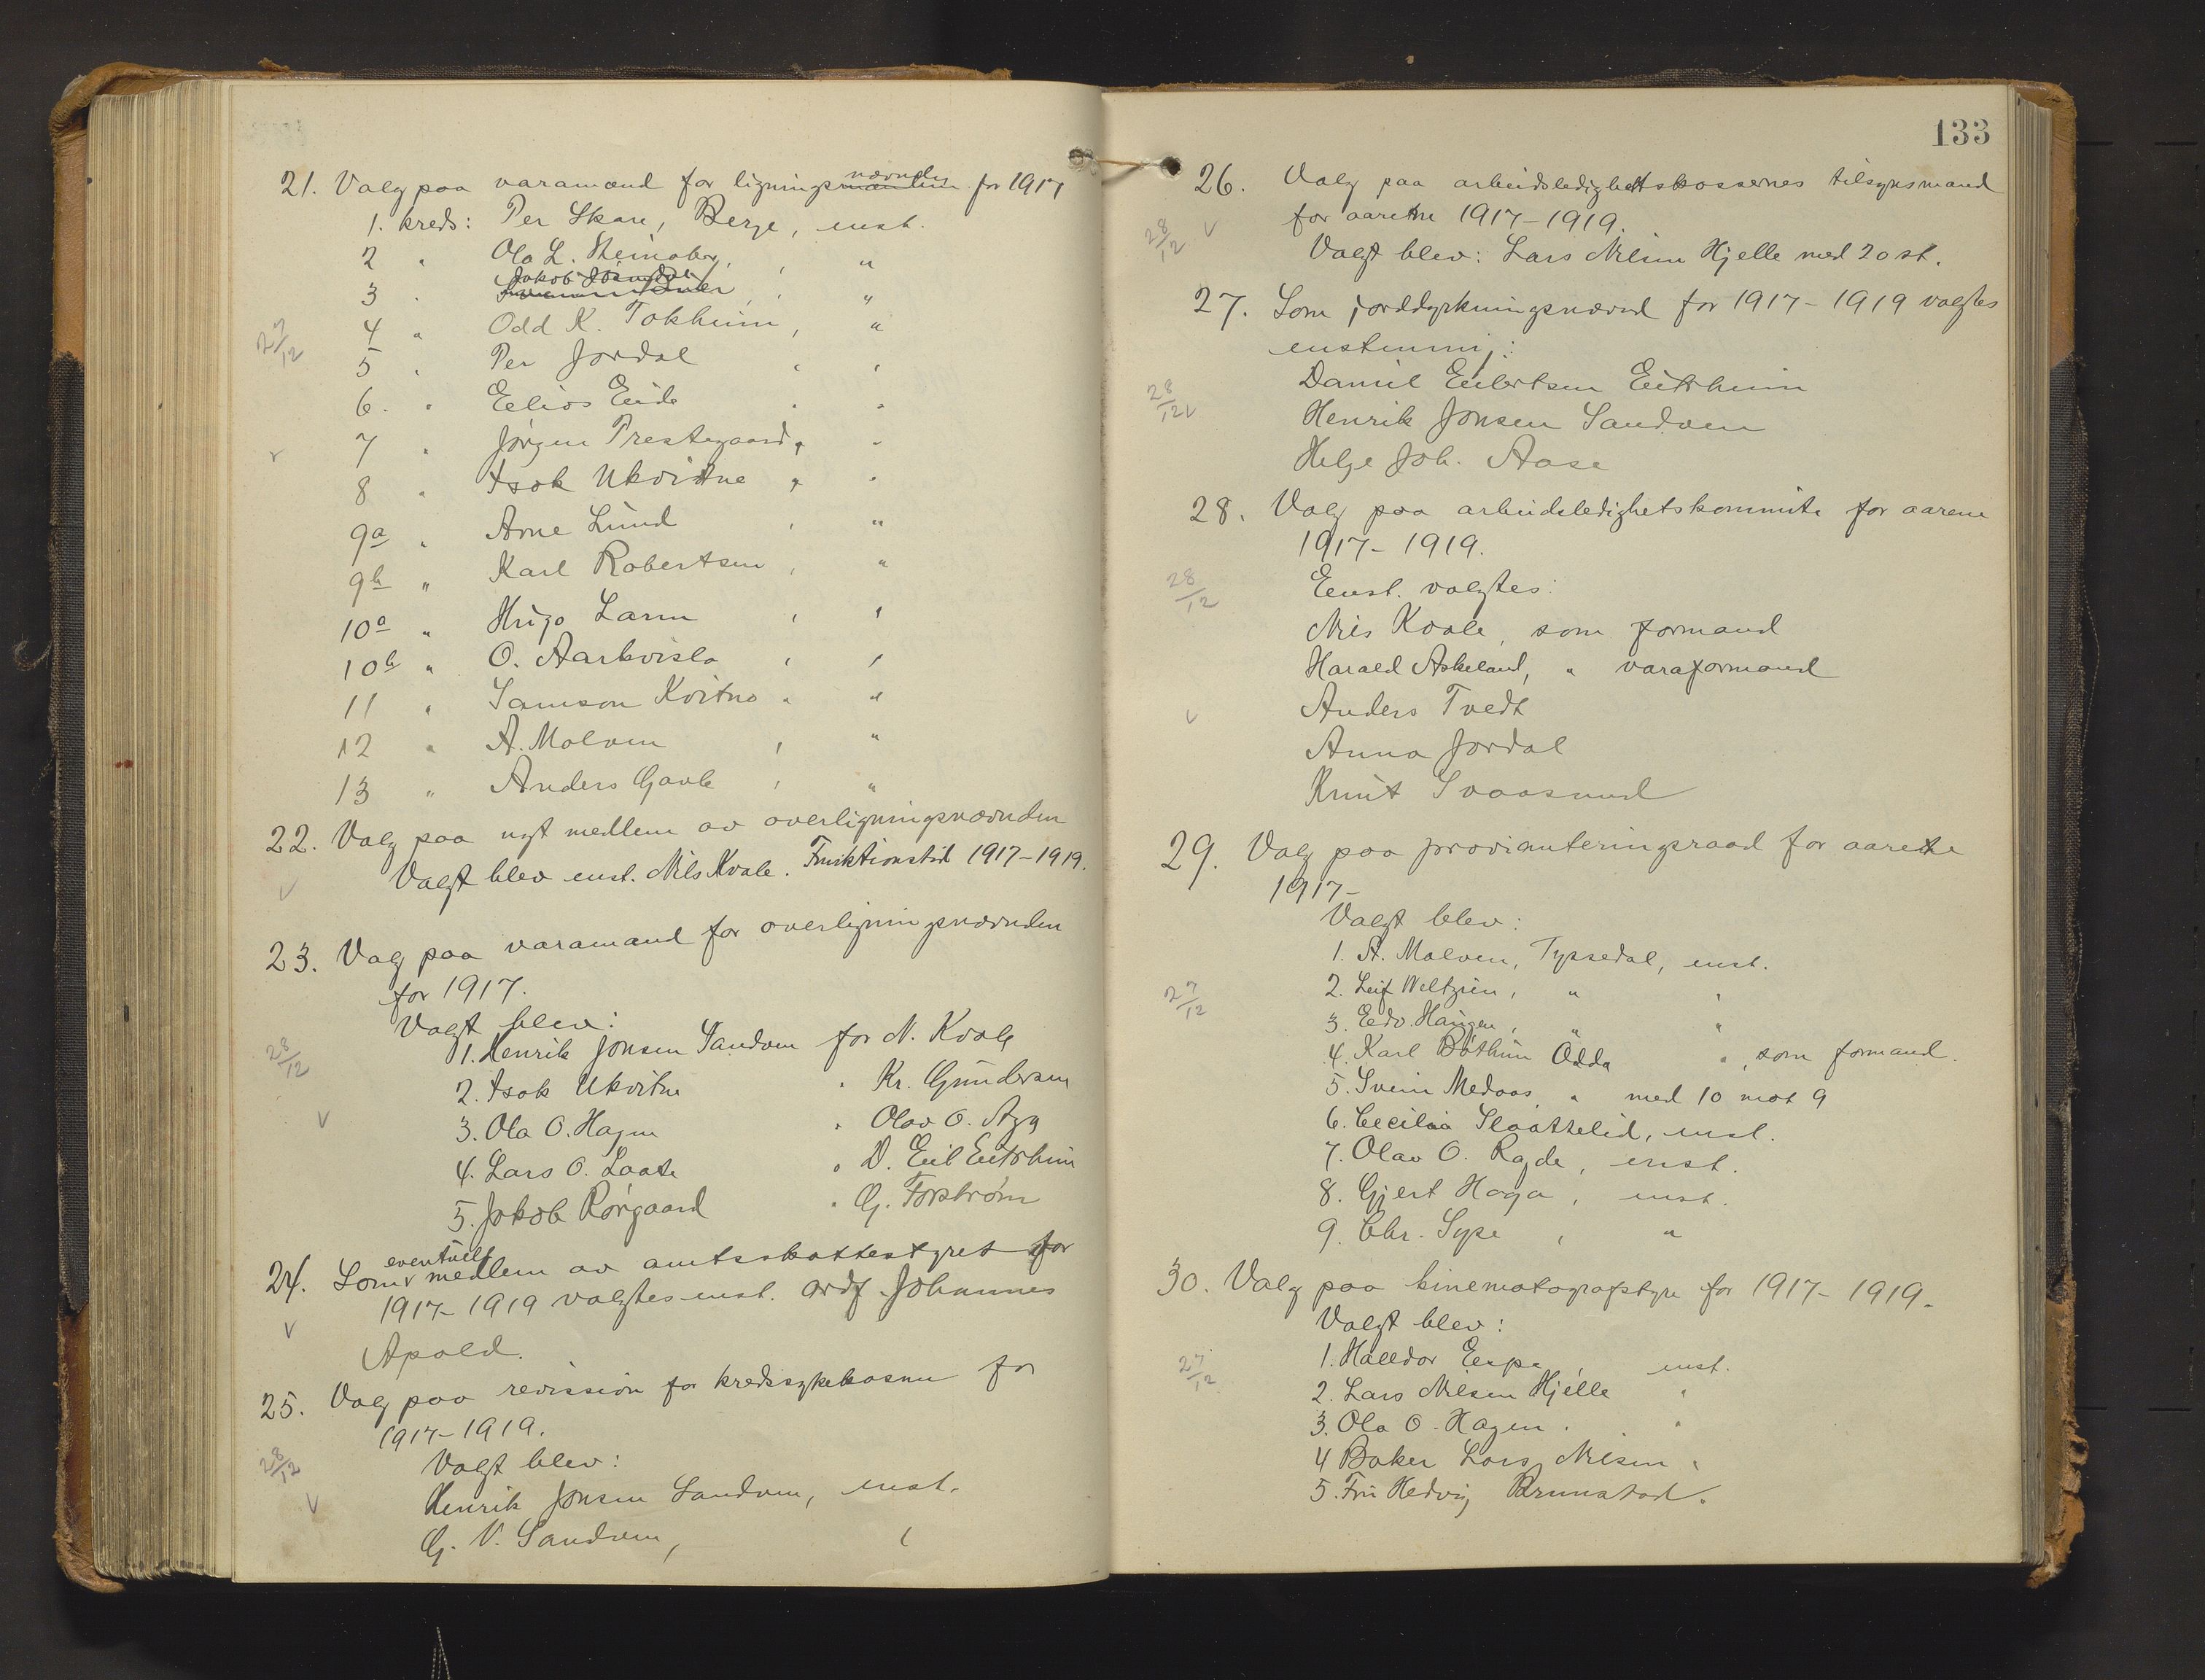 21. Valg paa varamænd for lignings nævnden for 1917
1. kreds: Per Skare, Berge, enst.
2 " Ola L. Steinaberg, , "
3 " Jakob , "
4 " Odd K. Tokheim, "
27/12
5 " Per Jordal " "
6. " Eelios Eide " "
7 " Jørgen Prestegaard, "
v
8 " Isak Ukvitne , "
9a " Arne Lund , "
9b " Karl Robertsen , "
10a " Hugo Larm , "
10b " O. Aarkvisla , "
11 " Samson Kvitno " "
12 " A. Malvin , "
13 " Anders Gavle , "
22. Valg paa nyt medlem av overligningsnævnden
Valgt blev enst. Nils Kvale. Funktionstid 1917-1919.
v
23. Valg paa varamænd for overligningsnævnden
for 1917.
Valgt blev:
28/12
1. Henrik Jonsen Sandven for N. Kvale
2. Isak Ukvitne " Kr. Gundersen
v
3. Ola O. Hagen " Olav O. Aga
4. Lars O. Laate " D. Eil Eitrheim
5. Jakob Rørgaard " G. Forstrøm
24. Som eventuelt medlem av amtsskattestyret for
1917-1919 valgtes enst. ordf. Johannes
v
Apold.
25. Valg paa revission for kredssykekassen for
1917-1919.
28/12
Valgt blev:
v
Henrik Jonsen Sandven, enst.
G. V. Sandven, "
133
26. Valg paa arbeidsledighetskassernes tilsynsmand
for aarene 1917-1919.
28/12 v
Valgt blev: Lars Nilsen Hjelle med 20 st.
27. Som jorddyrkningsnævnd for 1917-1919 valgtes
enstemmig:
Daniel Eilertsen Eitrheim
28/12 v
Henrik Jonsen Sandven
Helge Joh. Aase
28. Valg paa arbeidsledighetskommite for aarene
1917-1919.
28/12
Eenst. valgtes:
Nils Kvale, som formand
Harald Askeland, " varaformand
Anders Tvedt
v
Anna Jordal
Knut Svaasand
29. Valg paa provianteringsraad for aarene
1917-
Valgt blev:
1. A. Malven, Tyssedal, enst.
2. Leif Weltzien, " "
27/12
3. Edv. Haugen, " "
4. Karl Bøthun Odda ", som formand.
5. Svein Medaas, " med 10 mot 9
6. Cecilia Slaattelid, enst.
7. Olav O. Ragde, enst.
8. Gjert Haga, enst.
9. Chr. Syse , "
30. Valg paa kinematografstyre for 1917-1919.
Valgt blev:
27/12
1. Halldor Eispe, enst.
2. Lars Nilsen Hjelle "
3. Ola O. Hagen. "
4 Baker Lars Nilsen "
5. Fru Hedvig Brunstad.